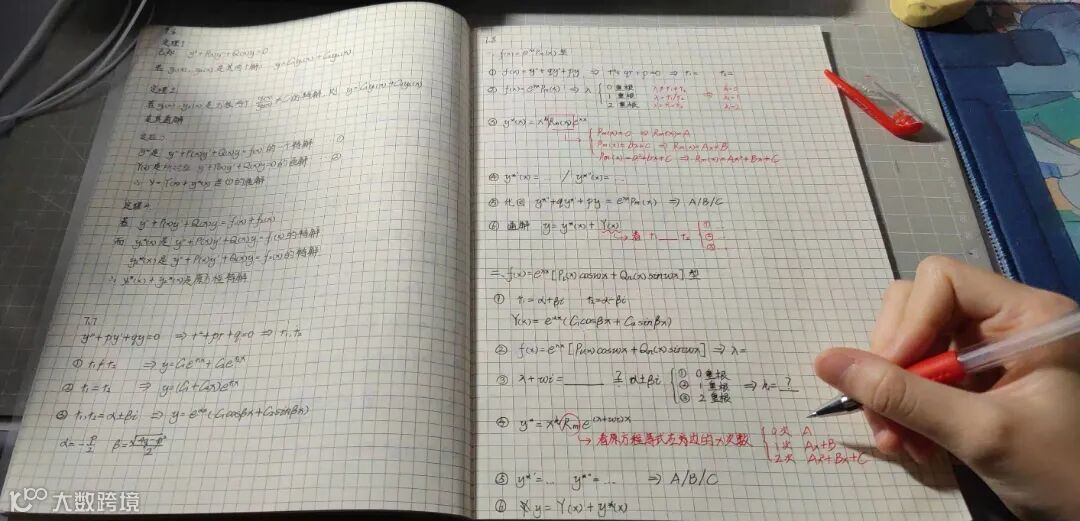 7.6
定理1
已知 y''+P(x)y'+Q(x)y=0
若 y₁(x), y₂(x)是其两个解, y=C₁y₁(x)+C₂y₂(x)
定理2
若y₁(x), y₂(x)是方程两个 ≠C的特解, 则 y=C₁y₁(x)+C₂y₂(x)
是其通解
定理3
y*是 y''+P(x)y'+Q(x)y=f(x)的一个特解 ①
Y(x)是 y''+P(x)y'+Q(x)y=0的通解 ②
∴ y=Y(x)+y*(x)是①的通解
定理4
若 y''+P(x)y'+Q(x)y=f₁(x)+f₂(x)
而 y₁*(x)是 y''+P(x)y'+Q(x)y=f₁(x)的特解
y₂*(x)是 y''+P(x)y'+Q(x)y=f₂(x)的特解
∴ y₁*(x)+y₂*(x)是原方程特解
7.7
y''+py'+qy=0 ⇒r²+pr+q=0 ⇒ r₁,r₂
① r₁≠r₂ ⇒ y=C₁e^{r₁x}+C₂e^{r₂x}
② r₁=r₂ ⇒ y=(C₁+C₂x)e^{r₁x}
③ r₁,r₂=α±βi ⇒ y=e^{αx}(C₁cosβx+C₂sinβx)
α=-p/2 β=√(4q-p²)/2
7.8
一、f(x)=e^{λx}Pm(x)型
① f(x)=y''+qy'+py ⇒ r²+qr+p=0 ⇒ r₁= r₂=
② f(x)=e^{λx}Pm(x) ⇒ λ { 0重根 λ≠r₁≠r₂ ⇒ k=0
1重根 λ=r₁/r₂ k=1
2重根 λ=r₁=r₂ k=2
③ y*(x)=x^k Rm(x)e^{λx}
→ { Pm(x)=C ⇒ Rm(x)=A
Pm(x)=bx+C ⇒ Rm(x)=Ax+B
Pm(x)=ax²+bx+C ⇒ Rm(x)=Ax²+Bx+C
④ y*'(x)=… / y*''(x)=…
⑤ 代回 y*''+qy*'+py=e^{λx}Pm(x) ⇒ A/B/C
⑥ 通解 y=y*(x)+Y(x)
→ 看 r₁__r₂ { ①…
②…
③…
二、f(x)=e^{λx}[Pl(x)cosωx+Qn(x)sinωx]型
① r₁=α+βi r₂=α-βi
Y(x)=e^{αx}(C₁cosβx+C₂sinβx)
② f(x)=e^{λx}[Pl(x)cosωx+Qn(x)sinωx] ⇒ λ=
③ λ+ωi=____ ? α±βi { ① 0重根 ⇒ k=?
② 1重根
③ 2重根
④ y*=x^k Rm e^{(λ+ωi)x}
→ 看原方程等式右边的x次数 { 0次 A
1次 Ax+B
2次 Ax²+Bx+C
⑤ y*'=… y*''=… ⇒ A/B/C
⑥ y=Y(x)+y*(x)
大数跨境